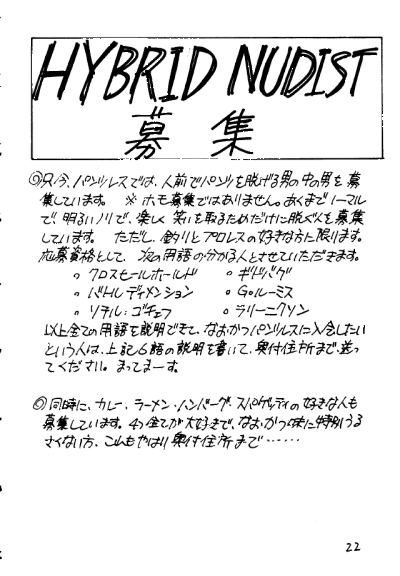 HYBRID NUDIST
募集
◎只今、パンツレスでは、人前でパンツを脱げる男の中の男を募
集しています。 ※ホモ募集ではありません。あくまでノーマル
で明るいノリで、楽しく笑いを取るためだけに脱ぐ人を募集
しています。 ただし、釣りとプロレスの好きな方に限ります。
応募資格として、次の用語の分かる人とさせていただきます。
○ クロスヒールホールド ○ ギドバグ
○ バトルディメンション ○ Goルーミス
○ リチル:ゴチェフ ○ ラリーニクソン
以上全ての用語を説明できて、なおかつパンツレスに入会したい
という人は、上記6語の説明を書いて、奥付住所まで送っ
てください。まってまーす。
◎同時に、カレー、ラーメン・ハンバーグ・スパゲッティの好きな人も
募集しています。4つ全てが大好きで、なおかつ味に特別うる
さくない方、こちらもやはり奥付住所まで……
22